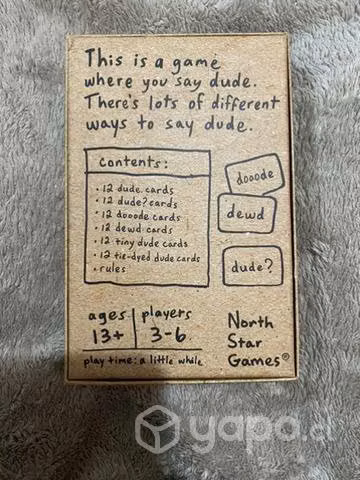 This is a game
where you say dude.
There's lots of different
ways to say dude.
contents:
• 12 dude. cards
• 12 dude? cards
• 12 dooode cards
• 12 dewd cards
• 12 tiny dude cards
• 12 tie-dyed dude cards
• rules
dooode
dewd
dude?
ages
13+
players
3-6
play time: a little while
North
Star
Games®
yapo.cl